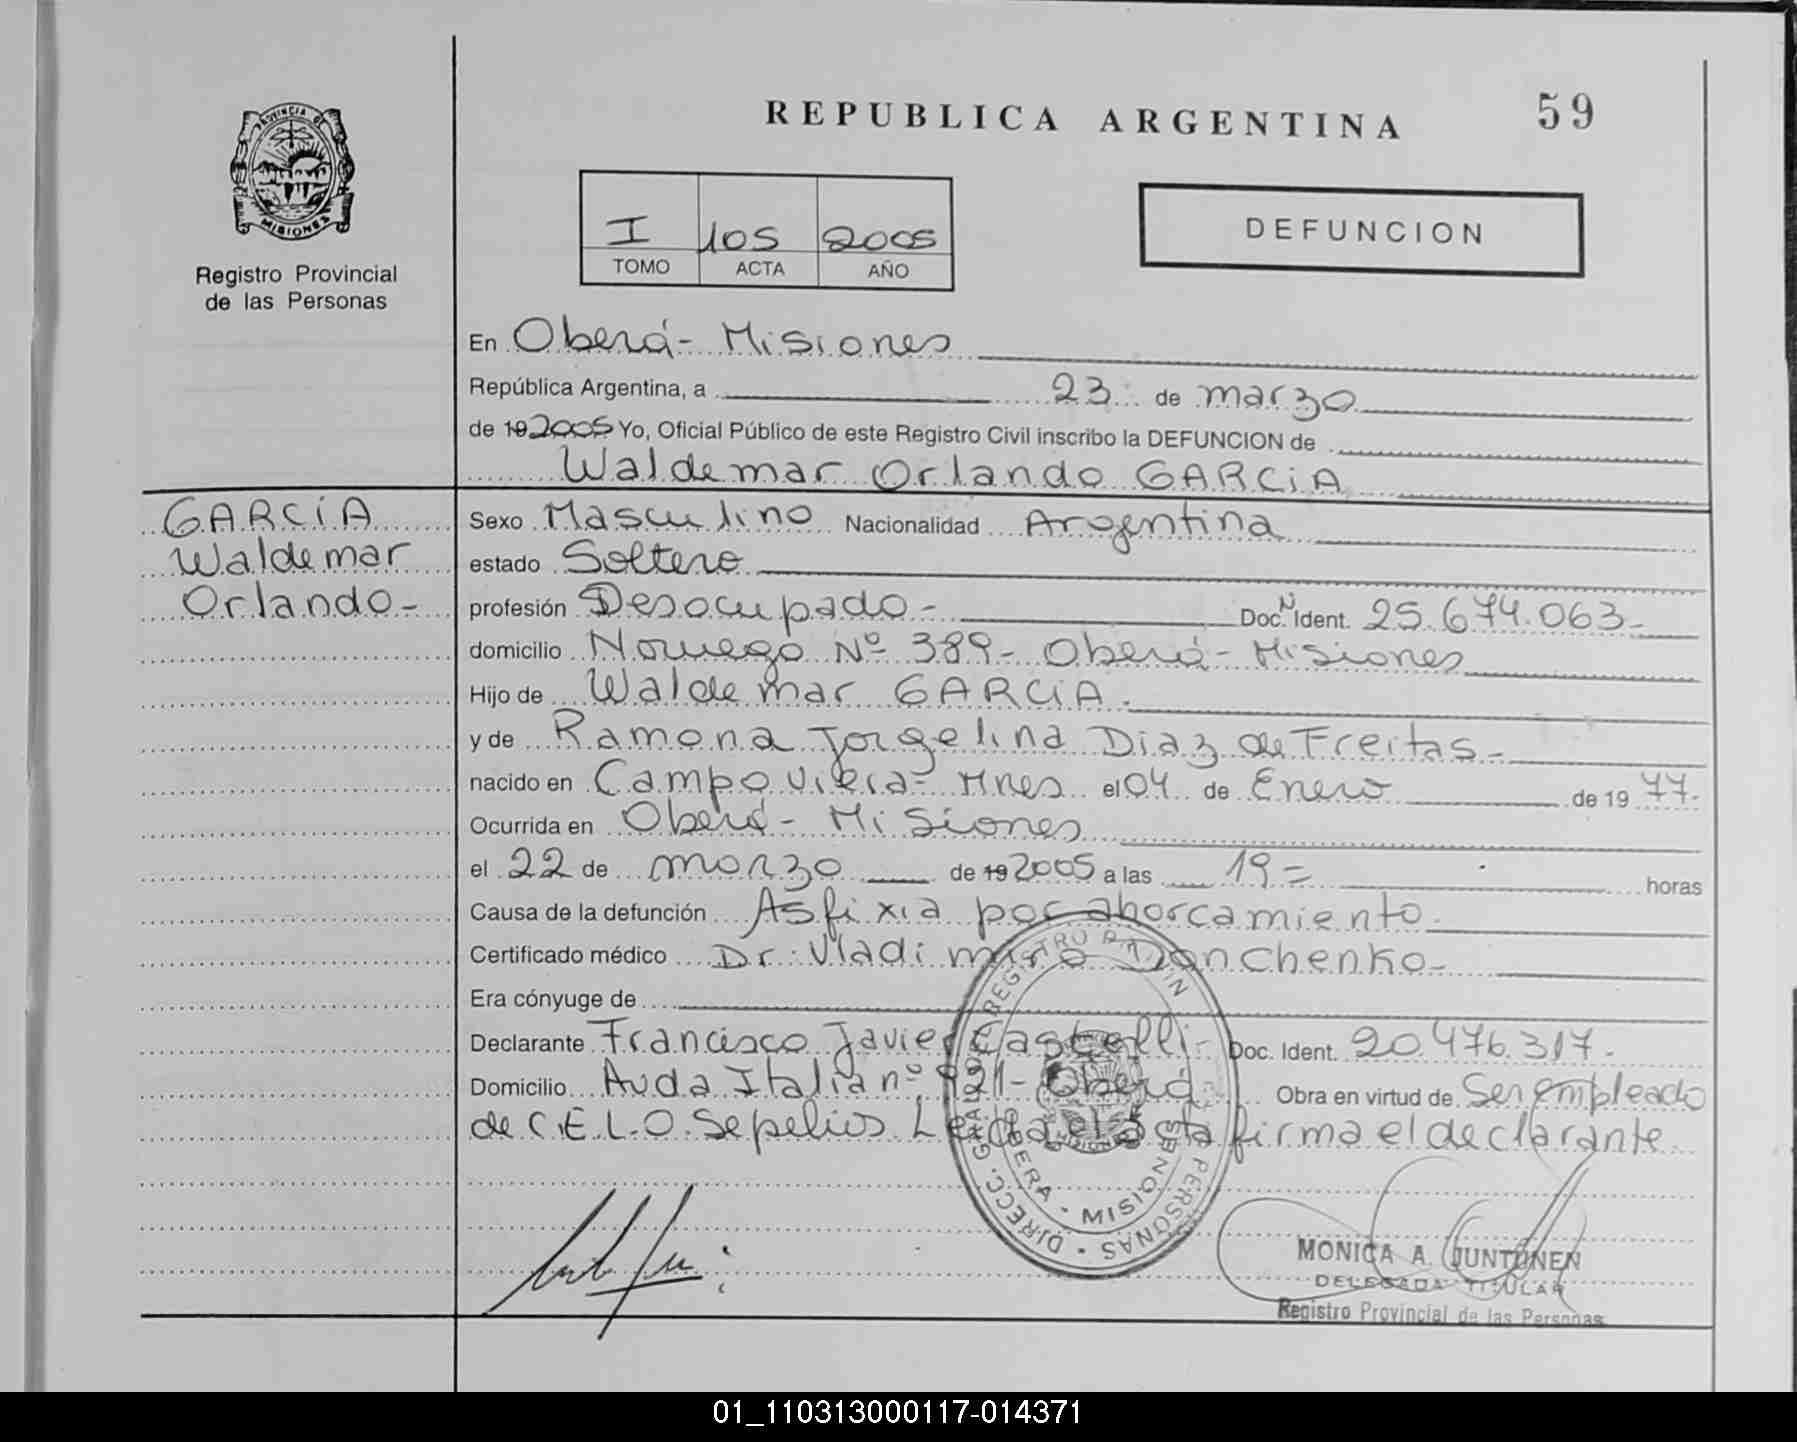 REPUBLICA ARGENTINA
59
PROVINCIA DE
MISIONES
Registro Provincial
de las Personas
I 105 2005
TOMO ACTA AÑO
DEFUNCION
En Oberá - Misiones
República Argentina, a 23 de marzo
de 19 2005 Yo, Oficial Público de este Registro Civil inscribo la DEFUNCION de
Waldemar Orlando GARCIA
GARCÍA
Waldemar
Orlando-
Sexo Masculino Nacionalidad Argentina
estado Soltero
profesión Desocupado- Doc. N Ident. 25.674.063-
domicilio Noruega Nº 389- Oberá - Misiones
Hijo de Waldemar GARCIA.
y de Ramona Jorgelina Diaz de Freitas-
nacido en Campo Viera= Mnes el 04 de Enero de 19 77.
Ocurrida en Oberá - Misiones
el 22 de marzo de 19 2005 a las 19= horas
Causa de la defunción Asfixia por ahorcamiento
Certificado médico Dr. Vladimiro Donchenko-
Era cónyuge de
Declarante Francisco Javier Doc. Ident. 20.476.317.
Domicilio Avda Italia nº 921- Oberá Obra en virtud de Ser empleado
de C.E.L.O. Sepelios Leída el acta firma el declarante.
DIRECC. GRAL. DE REGISTRO PERSONAS
OBERA - MISIONES
MONICA A. JUNTUNEN
DELEGADA TITULAR
Registro Provincial de las Personas
01_110313000117-014371